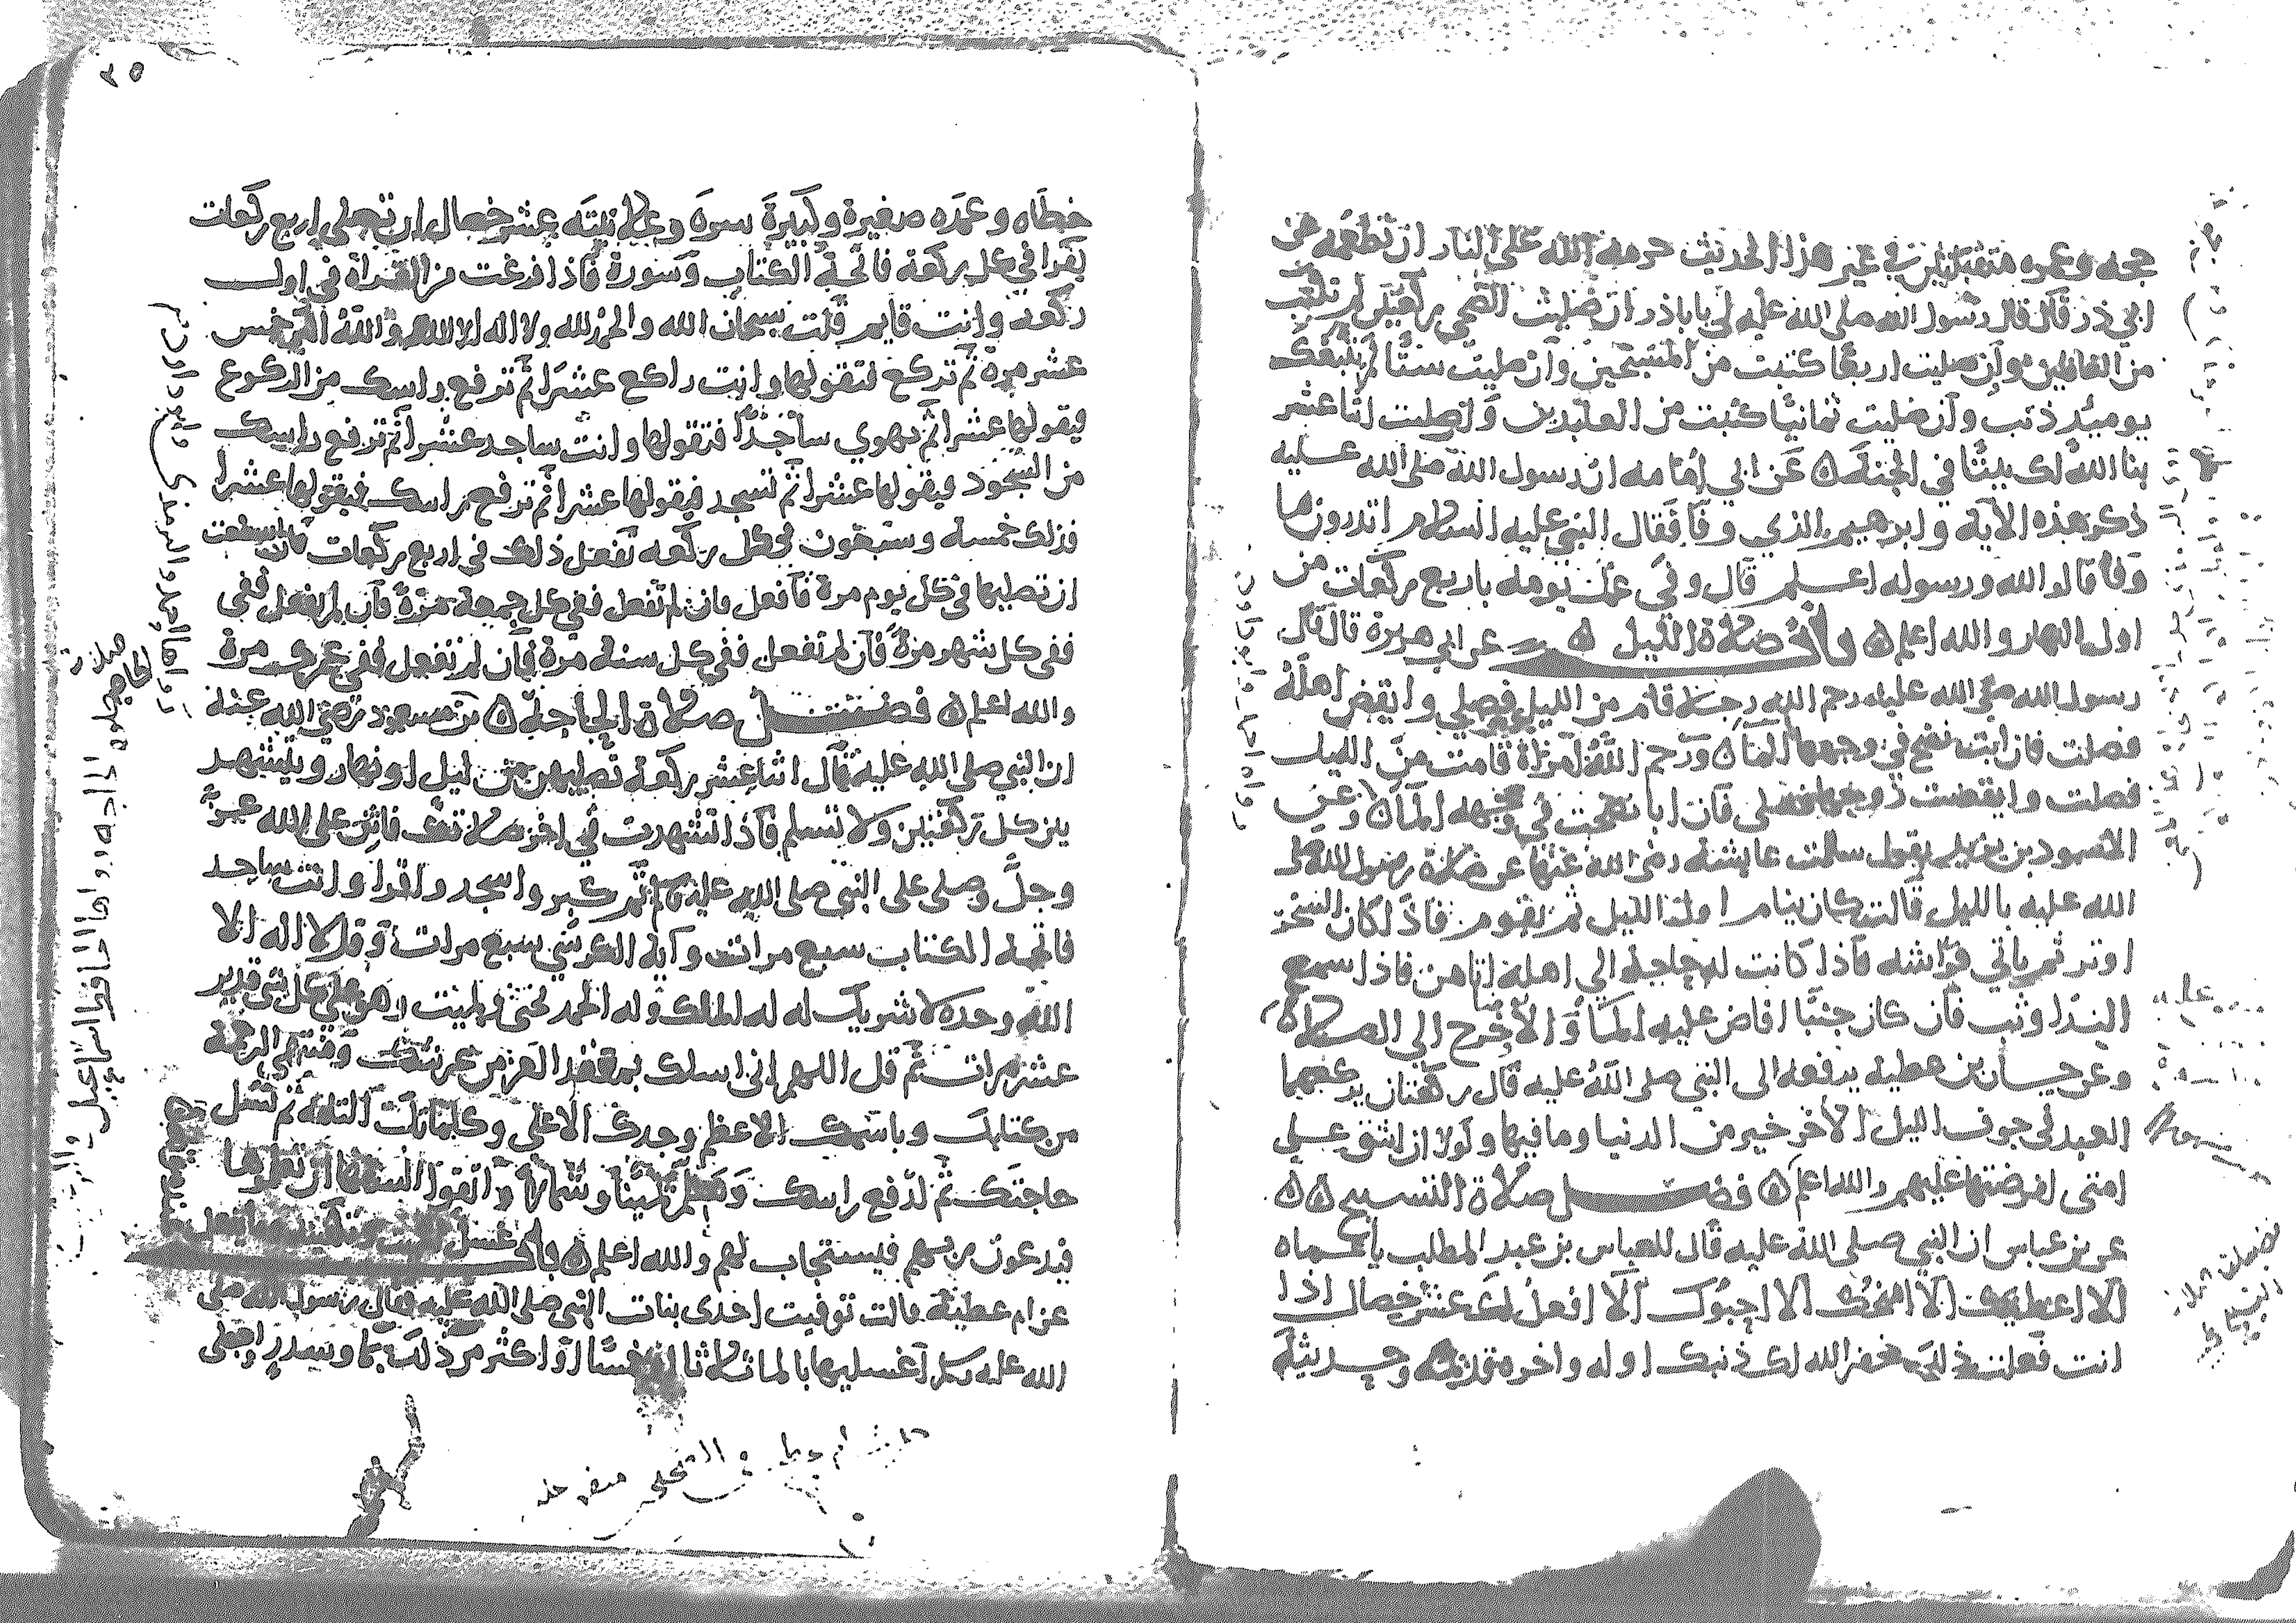 حجه وعمره متقبلتين في غير هذا الحديث حرمه الله على النار ان تطعمه عن
ابي ذر قال قال رسول الله صلى الله عليه لي يا باذر ان صليت الضحى ركعتين لم تكتب
من الغافلين وان صليت اربعا كتبت من المسبحين وان صليت ستا لم يتبعك
يوميذ ذنب وان صليت ثمانيا كتبت من العابدين وان صليت اثنا عشر
بنا الله لك بيتا في الجنة ن عن ابي امامه ان رسول الله صلى الله عليه
ذكر هذه الاية وابرهيم الذي وفا فقال النبي عليه السلام اتدرون ما
وفا قالوا الله ورسوله اعلم قال وفي عمل يومه باربع ركعات من
اول النهار والله اعلم ن صلاة الليل ن عن ابي هريرة قال قال
رسول الله صلى الله عليه رحم الله رجلا قام من الليل فصلى وايقض اهله
فصلت فان ابت نضح في وجهها الماء ن ورحم الله امراة قامت من الليل
فصلت وايقضت زوجها فصلى فان ابا نضحت في وجهه الماء ن وعن
الاسود بن يزيد يقول سالت عايشة رضي الله عنها عن صلاة رسول الله صلى
الله عليه بالليل قالت كان ينام اول الليل ثم يقوم فاذا كان السحر
اوتر ثم ياتي فراشه فاذا كانت له حاجة الى اهله اتاهن فاذا سمع
الندا وثب فان كان جنبا افاض عليه الما والا توضا خرج الى الصلاة
وعن حسان بن عطية يرفعه الى النبي صلى الله عليه قال ركعتان يركعهما
العبد في جوف الليل الاخر خير من الدنيا وما فيها ولولا ان اشق على
امتى لفرضتها عليهم والله اعلم ن فضل صلاة التسبيح ن ن
عن بن عباس ان النبي صلى الله عليه قال للعباس بن عبد المطلب يا عماه
الا اعطيك الا امنحك الا احبوك الا افعل لك عشر خصال اذا
انت فعلت ذلك غفر الله لك ذنبك اوله واخره قديمه وحديثه
٣٥
خطاه وعمده صغيرة وكبيرة سره وعلانيته عشر خصال ان تصلي اربع ركعات
يقرا في كل ركعة فاتحة الكتاب وسورة فاذا فرغت من القراة في اول
ركعه وانت قايم قلت سبحان الله والحمد لله ولا اله الا الله والله اكبر خمس
عشر مرة ثم تركع فتقولها وانت راكع عشرا ثم ترفع راسك من الركوع
فيقولها عشرا ثم تهوي ساجدا فتقولها وانت ساجد عشرا ثم ترفع راسك
من السجود فيقولها عشرا ثم تسجد فيقولها عشرا ثم ترفع راسك فيقولها عشرا
فذلك خمسة وسبعون في كل ركعه تفعل ذلك في اربع ركعات فان استطعت
ان تصليها في كل يوم مرة فافعل فان لم تفعل ففي كل جمعة مرة فان لم تفعل ففي
ففي كل شهر مرة فان لم تفعل ففي كل سنة مرة فان لم تفعل ففي عمرك مرة
والله اعلم ن فضل صلاة الحاجة ن بن مسعود رضي الله عنه
ان النبي صلى الله عليه قال اثنا عشر ركعة تصليهن من ليل او نهار ويتشهد
بين كل ركعتين ولا تسلم فاذا تشهدت في اخر صلاتك فاثن على الله عز
وجل وصلى على النبي صلى الله عليه ثم كبر واسجد واقرا وانت ساجد
فاتحة الكتاب سبع مرات واية الكرسي سبع مرات وقل لا اله الا
الله وحده لا شريك له له الملك وله الحمد يحيى ويميت وهو على كل شي قدير
عشر مرات ثم قل اللهم اني اسلك بمقعد العز من عرشك ومنتهى الرحمة
من كتابك وباسمك الاعظم وجدك الاعلى وكلماتك التامة ثم تسل
حاجتك ثم ارفع راسك وسلم يمينا وشمالا واتقوا السفها ان تعلموها
فيدعون ربهم فيستجاب لهم والله اعلم ن باب غسل
عن ام عطية قالت توفيت احدى بنات النبي صلى الله عليه فقال رسول الله صلى
الله عليه اغسليها بالما ثلاثا او خمسا او اكثر من ذلك بما وسدر واجعلى